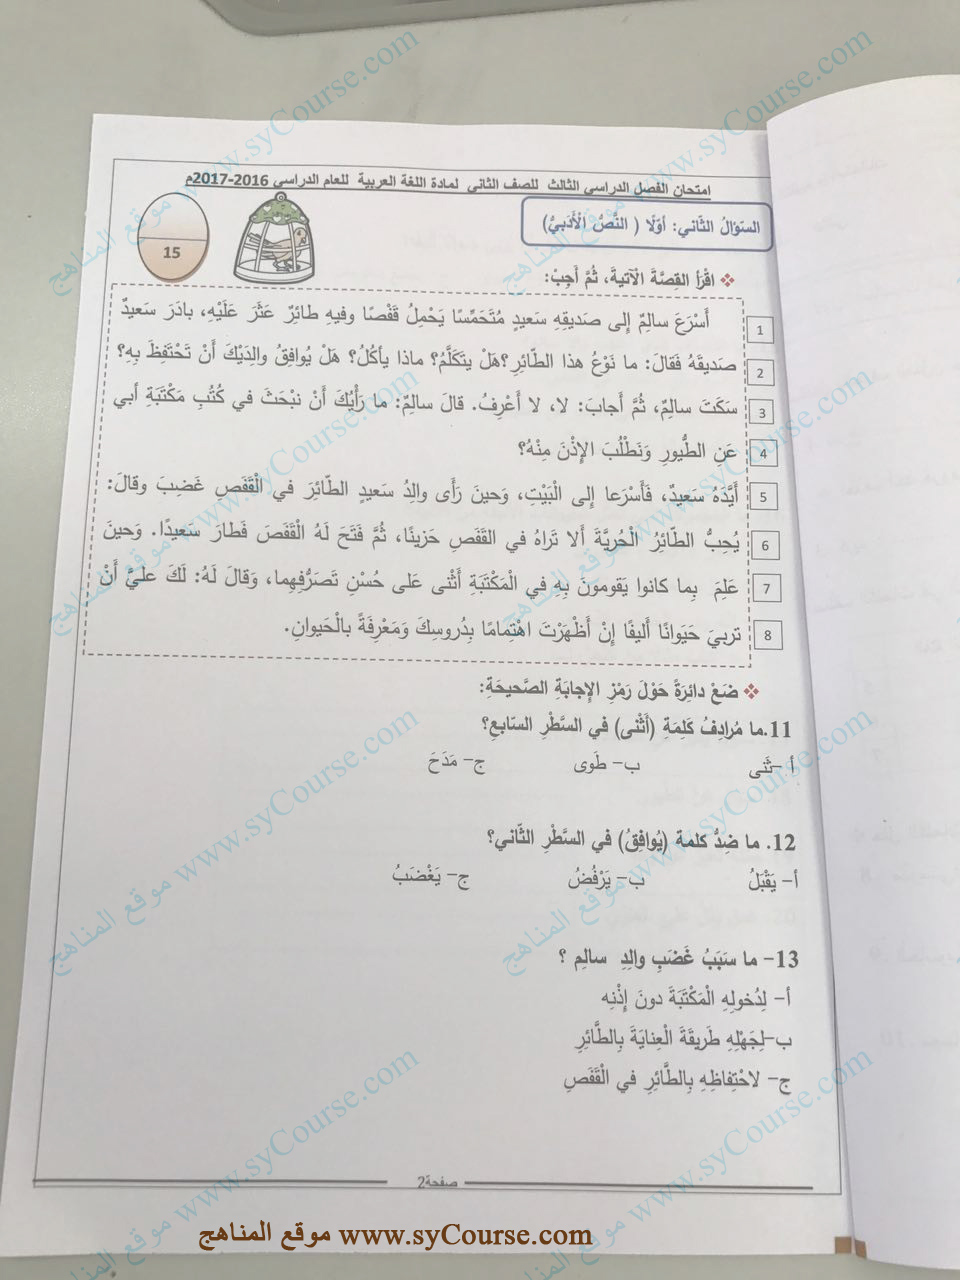 امتحان الفصل الدراسي الثالث للصف الثاني لمادة اللغة العربية للعام الدراسي 2016-2017م
السّؤالُ الثّاني: أوّلًا ( النَّصُّ الْأَدَبيُّ)
15
اقْرَأ القِصَّةَ الْآتيةَ، ثُمَّ أَجِبْ:
1 أَسْرَعَ سالِمٌ إلى صَديقِهِ سَعيدٍ مُتَحَمِّسًا يَحْمِلُ قَفَصًا وفيهِ طائِرٌ عَثَرَ عَلَيْهِ، بادَرَ سَعيدٌ
2 صَديقَهُ فَقالَ: ما نَوْعُ هذا الطّائِرِ؟هَلْ يتَكَلَّمُ؟ ماذا يأكُلُ؟ هَلْ يُوافِقُ والِدَيْكَ أَنْ تَحْتَفِظَ بِهِ؟
3 سَكَتَ سالِمٌ، ثُمَّ أَجابَ: لا، لا أَعْرِفُ. قالَ سالِمٌ: ما رَأْيُكَ أَنْ نبْحَثَ في كُتُبِ مَكْتَبَةِ أبي
4 عَنِ الطُّيورِ وَنَطْلُبَ الإِذْنَ مِنْهُ؟
5 أَيَّدَهُ سَعيدٌ، فَأَسْرَعا إلى الْبَيْتِ، وَحينَ رَأى والِدُ سَعيدٍ الطّائِرَ في الْقَفَصِ غَضِبَ وقالَ:
6 يُحِبُّ الطّائِرُ الْحُريَّةَ ألا تَراهُ في القَفَصِ حَزينًا، ثُمَّ فَتَحَ لَهُ الْقَفَصَ فَطارَ سَعيدًا. وَحينَ
7 عَلِمَ بِما كانوا يَقومونَ بِهِ في الْمَكْتَبَةِ أَثْنى عَلى حُسْنِ تَصَرُّفِهِما، وَقالَ لَهُ: لَكَ عليَّ أَنْ
8 تربيَ حَيَوانًا أَليفًا إنْ أَظْهَرْتَ اهْتِمامًا بِدُروسِكَ وَمَعْرِفَةً بالْحَيوانِ.
ضَعْ دائِرَةً حَوْلَ رَمْزِ الإِجابَةِ الصَّحيحَةِ:
11.ما مُرادِفُ كَلِمَةِ (أَثْنى) في السَّطْرِ السّابِعِ؟
أ -ثَنى ب- طَوى ج- مَدَحَ
12. ما ضِدُّ كلمة (يُوافِقُ) في السَّطْرِ الثّاني؟
أ- يَقْبَلُ ب- يَرْفُضُ ج- يَغْضَبُ
13- ما سَبَبُ غَضَبِ والِدِ سالِمٍ ؟
أ- لِدُخولِهِ الْمَكْتَبَةَ دونَ إِذْنِه
ب-لِجَهْلِهِ طَريقَةَ الْعِنايَةَ بِالطَّائِرِ
ج- لاحْتِفاظِهِ بِالطَّائِرِ في الْقَفَصِ
صفحة2
موقع المناهج www.syCourse.com